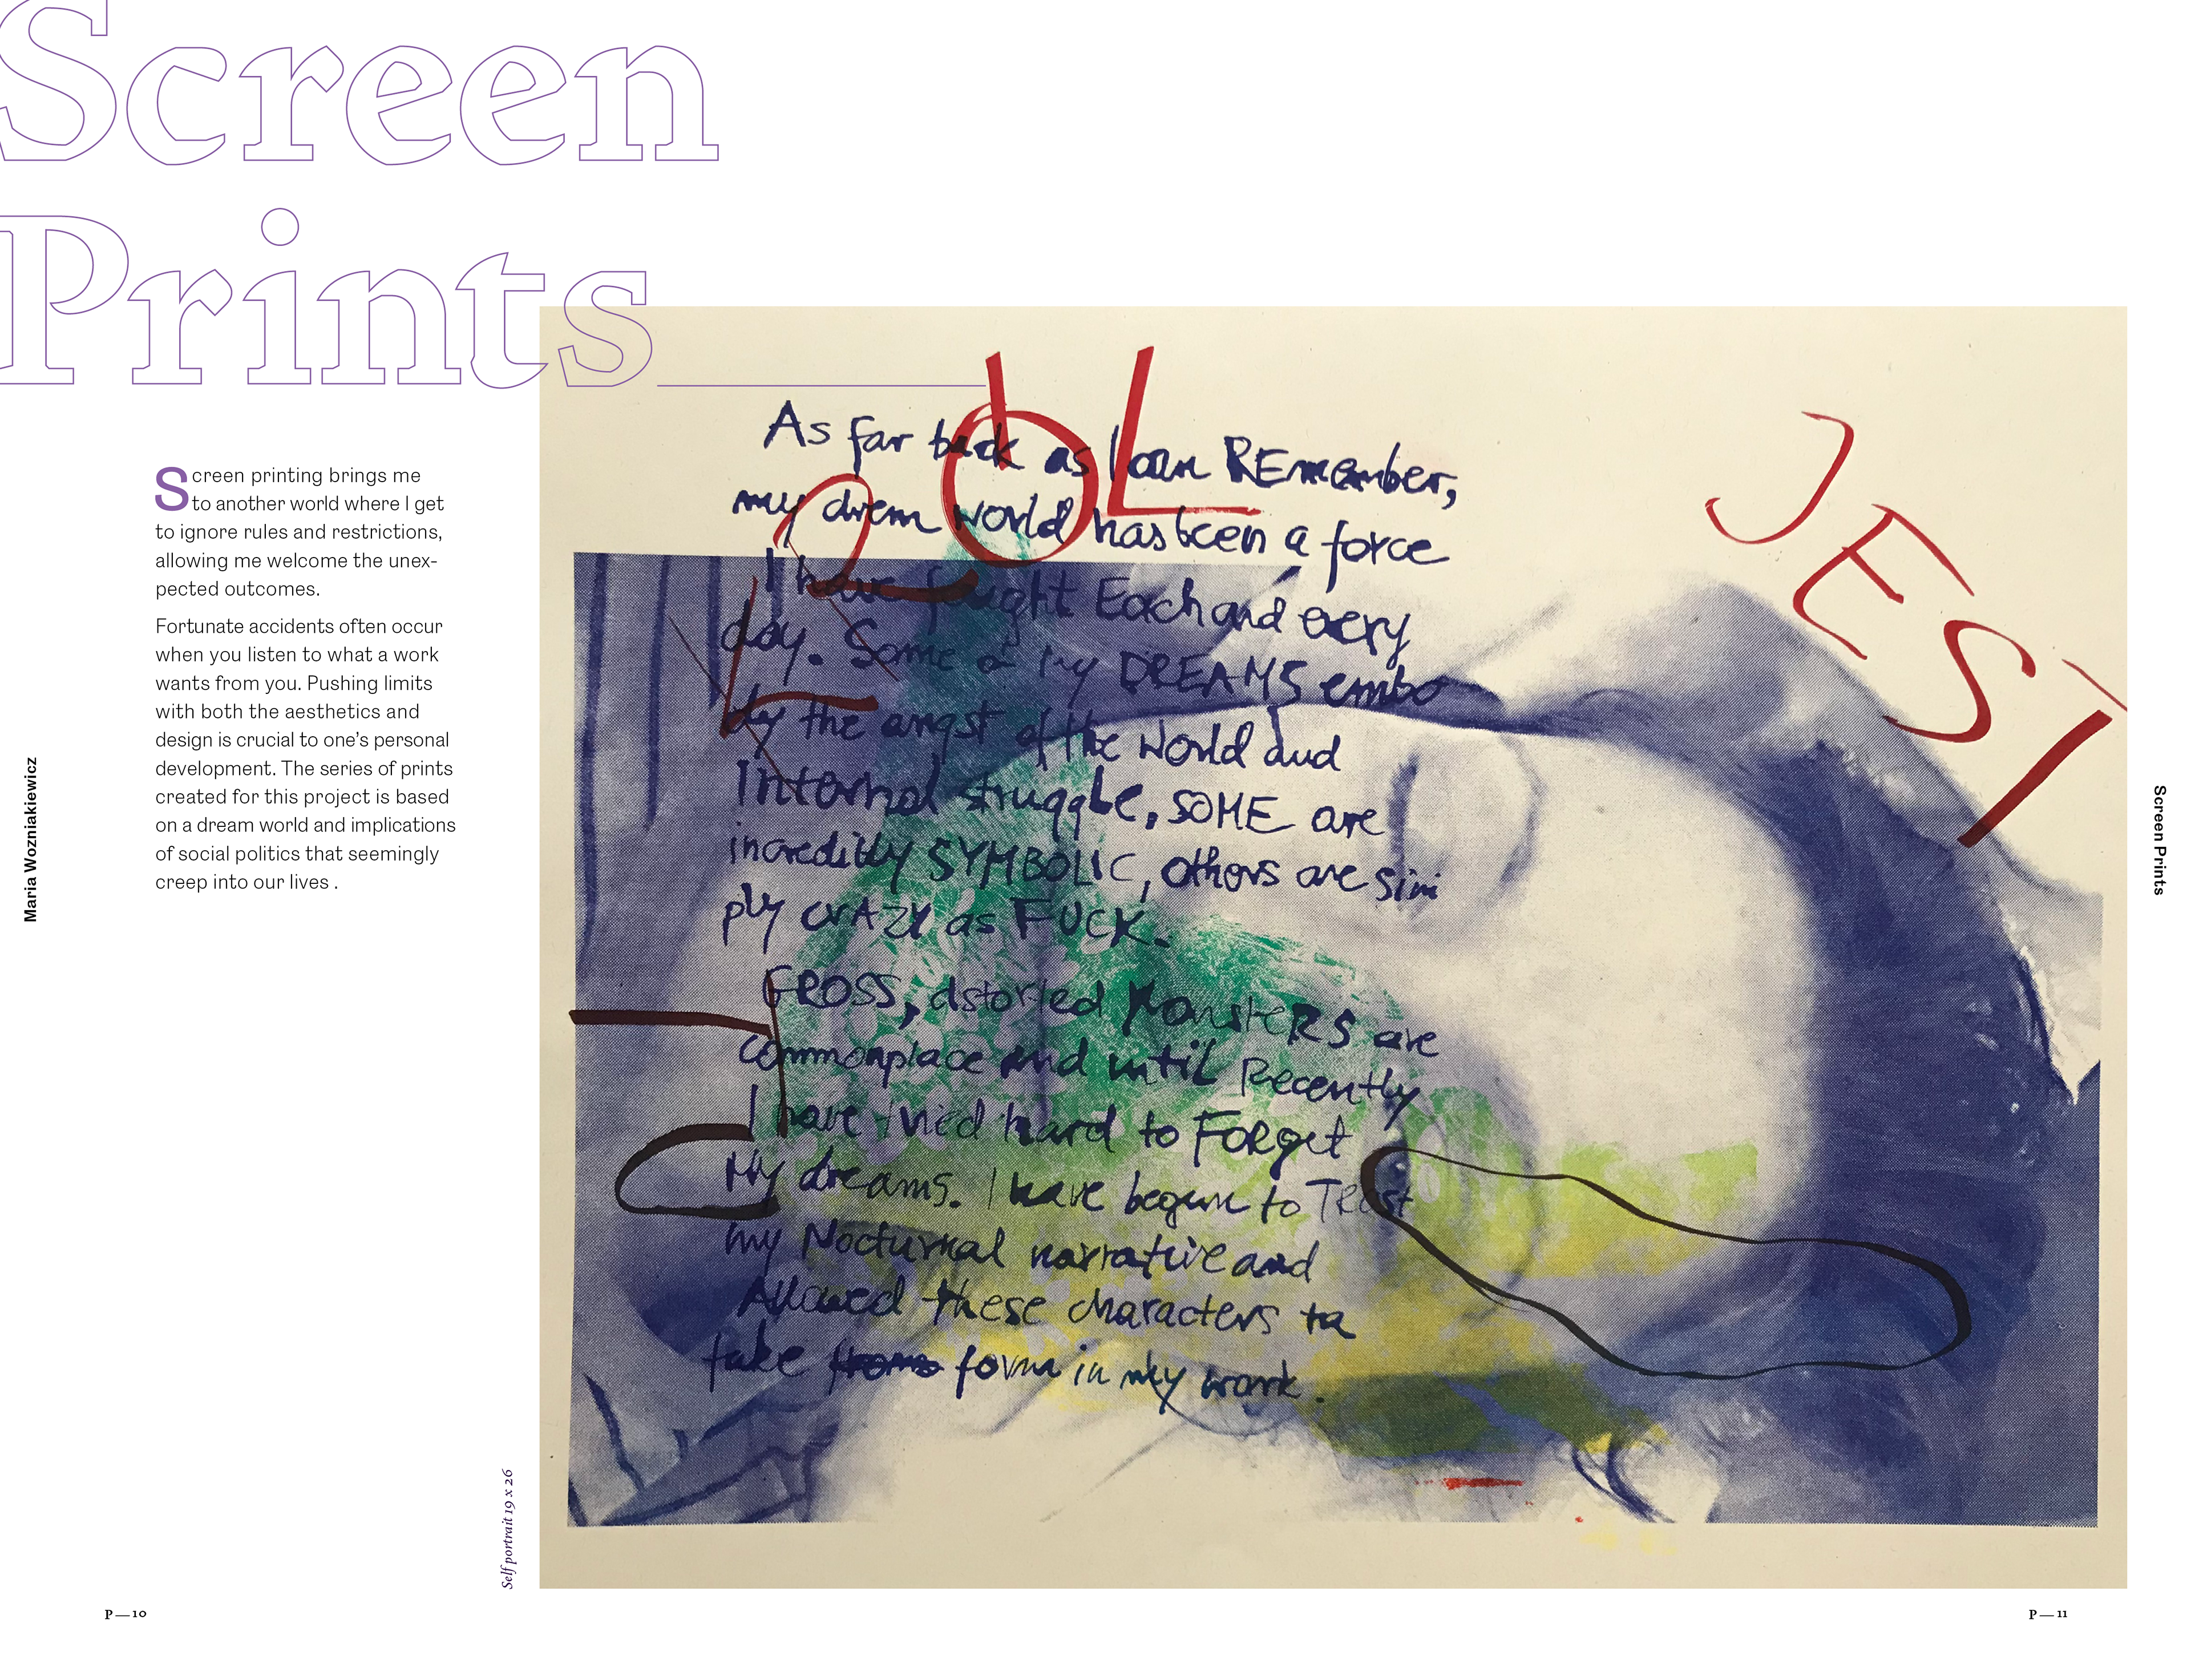 Screen
Prints
Screen printing brings me
to another world where I get
to ignore rules and restrictions,
allowing me welcome the unex-
pected outcomes.
Fortunate accidents often occur
when you listen to what a work
wants from you. Pushing limits
with both the aesthetics and
design is crucial to one’s personal
development. The series of prints
created for this project is based
on a dream world and implications
of social politics that seemingly
creep into our lives .
Maria Wozniakiewicz
Self portrait 19 x 26
As far back as I can REmember,
my drem world has been a force
I have fought Each and every
day. Some of my DREAMS embo
dy the angst of the World and
Internal struggle, SOME are
incredibly SYMBOLIC, others are sim
ply crAZY as FUCK.
GROSS, distorted MonsteRS are
commonplace and until Recently
I have tried hard to FoRget
My dreams. I have begun to TRust
my Nocturnal narrative and
Allowed these characters to
take form in my work.
JEST
Screen Prints
P—10
P—11